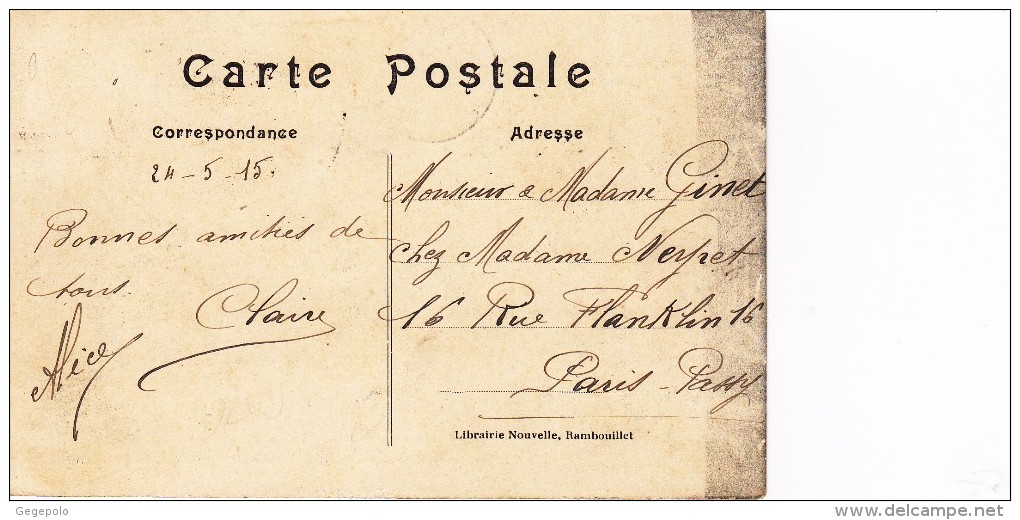 Carte Postale
Correspondance
Adresse
24-5-15.
Bonnes amitiés de
tous
Claire
Alice
Monsieur & Madame Ginet
chez Madame Neyret
16 Rue Flanklin 16
Paris-Passy
Librairie Nouvelle, Rambouillet
Gegepolo
delcampe.net